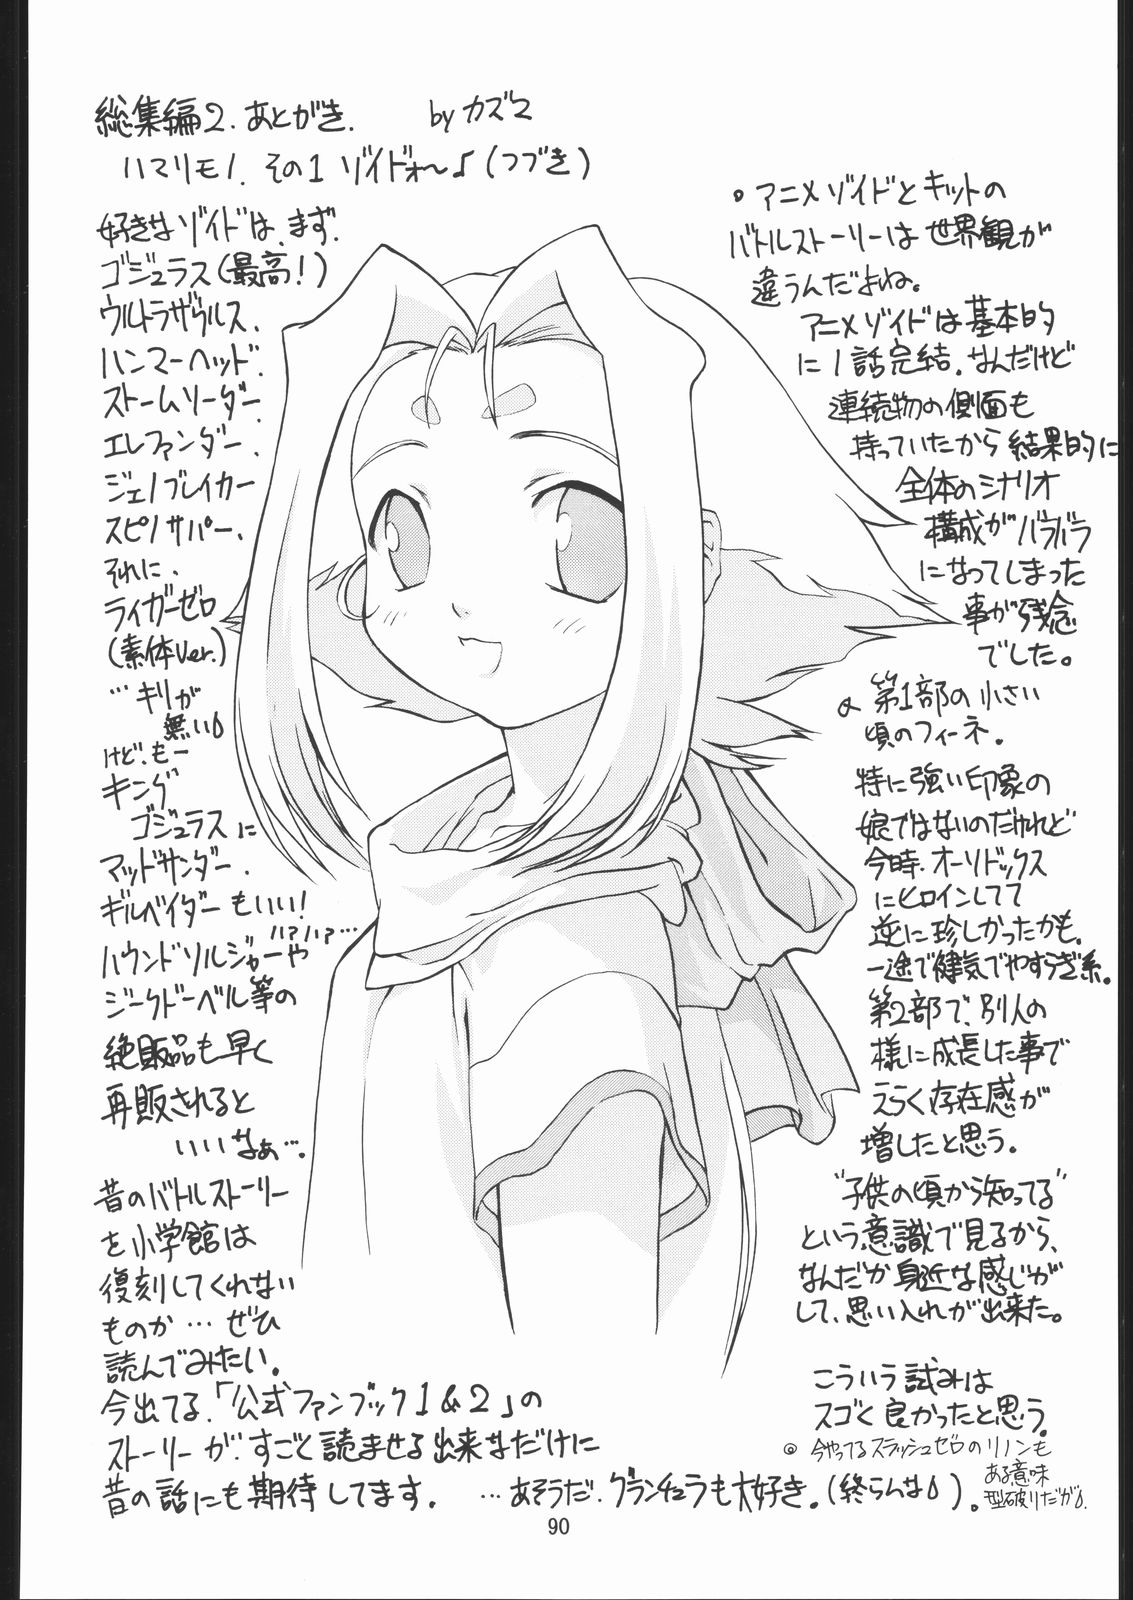 総集編2. あとがき. by カズマ
ハマリモノ. その1 ゾイドォ〜♪(つづき)
好きなゾイドは、まず.
ゴジュラス(最高!)
ウルトラザウルス.
ハンマーヘッド.
ストームソーダー.
エレファンダー.
ジェノブレイカー
スピノサパー.
それに.
ライガーゼロ
(素体Ver.)
…キリが
無い
けど、もー
キング
ゴジュラスに
マッドサンダー.
ギルベイダーもいい!
ハァハァ…
ハウンドソルジャーや
ジークドーベル等の
絶販品も早く
再販されると
いいなぁ….
昔のバトルストーリー
を小学館は
復刻してくれない
ものか…ぜひ
読んでみたい。
今出てる.「公式ファンブック1&2」の
ストーリーが.すごく読ませる出来なだけに
昔の話にも期待してます. …あそうだ.グランチュラも大好き.(終らんな)。
。アニメゾイドとキットの
バトルストーリーは世界観が
違うんだよね。
アニメゾイドは基本的
に1話完結.なんだけど
連続物の側面も
持っていたから結果的に
全体のシナリオ
構成がバラバラ
になってしまった
事が残念
でした。
第1部の小さい
頃のフィーネ.
特に強い印象の
娘ではないのだけれど
今時.オーソドックス
にヒロインしてて
逆に珍しかったかも.
一途で健気でやすらぎ系.
第2部で、別人の
様に成長した事で
えらく存在感が
増したと思う。
"子供の頃から知ってる"
という意識で見るから、
なんだか身近な感じが
して、思い入れが出来た。
こういう試みは
スゴく良かったと思う。
◎今やってるスラッシュゼロのリノンも
ある意味
型破りだが.
90